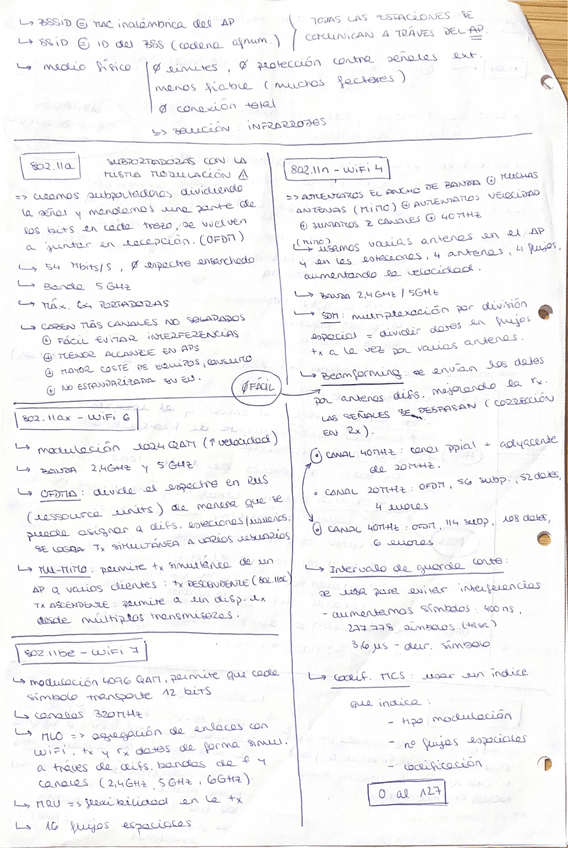 ↳ BSSID ≡ MAC inalámbrica del AP
↳ SSID ≡ ID del BSS (cadena afnum.)
TODAS LAS ESTACIONES SE
COMUNICAN A TRAVÉS DEL AP.
↳ medio físico: ∅ límites, ∅ protección contra señales ext.
menos fiable (muchos factores)
∅ conexión total
↳ solución: INFRARROJOS
802.11a
SUBPORTADORAS CON LA
MISMA MODULACIÓN ⚠
=> creamos subportadoras dividiendo
la señal y mandamos una parte de
los bits en cada trozo, se vuelven
a juntar en recepción. (OFDM)
↳ 54 Mbits/s, ∅ espectro ensanchado
↳ Banda 5GHz
↳ Máx. 64 PORTADORAS
↳ CABEN MÁS CANALES NO SOLAPADOS
⊕ FÁCIL EVITAR INTERFERENCIAS
⊕ MENOR ALCANCE EN APS
⊕ MAYOR COSTE DE EQUIPOS, CONSUMO
⊕ NO ESTANDARIZADA EN EU.
∅ FÁCIL
802.11ax - WiFi 6
↳ modulación 1024 QAM (↑ velocidad)
↳ BANDA 2,4GHz y 5GHz
↳ OFDMA: divide el espectro en RUs
(ressource units) de manera que se
puede asignar a difs. estaciones/usuarios.
SE LOGRA Tx SIMULTÁNEA A VARIOS USUARIOS
↳ MU-MIMO: permite tx simultánea de un
AP a varios clientes: tx DESCENDENTE (802.11ac)
TX ASCENDENTE: permite a un disp. rx
desde múltiples transmisores.
802.11be - WiFi 7
↳ modulación 4096 QAM, permite que cada
símbolo transporte 12 bits
↳ canales 320MHz
↳ MLO => agregación de enlaces con
WiFi, tx y rx datos de forma simul.
a través de difs. bandas de f y
canales (2,4GHz, 5GHz, 6GHz)
↳ MRU => flexibilidad en la tx
↳ 16 flujos espaciales
802.11n - WiFi 4
=> AUMENTAMOS EL ANCHO DE BANDA ⊕ MUCHAS
ANTENAS (MIMO) ⊕ AUMENTAMOS VELOCIDAD
⊕ JUNTAMOS 2 CANALES ⊕ 40MHz
(MIMO)
↳ usamos varias antenas en el AP
y en las estaciones, 4 antenas, 4 flujos,
aumentando la velocidad.
↳ BANDA 2,4GHz / 5GHz
↳ SDM: multiplexación por división
espacial = dividir datos en flujos
tx a la vez por varias antenas.
↳ Beamforming: se envían los datos
por antenas difs. mejorando la rx.
LAS SEÑALES SE DESFASAN (CORRECCIÓN
EN Rx).
• CANAL 40MHz: canal ppial + adyacente
de 20MHz.
• CANAL 20MHz: OFDM, 56 subp., 52 datos,
4 valores
• CANAL 40MHz: OFDM, 114 subp., 108 datos,
6 valores
↳ Intervalo de guarda corto:
se usa para evitar interferencias
- aumentamos símbolos: 400 ns,
277.778 símbolos
3,6 µs - dur. símbolo
↳ Codif. MCS: usar un índice
que indica:
- tipo modulación
- nº flujos espaciales
- codificación
0 al 127